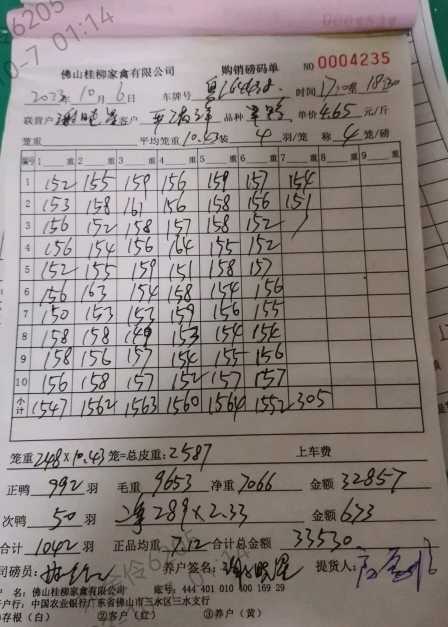 0004235
佛山桂柳家禽有限公司 购销磅码单 NO 0004235
2023年10月6日 车牌号 时间
联营户 客户 品种 单价4.65元/斤
笼重 平均笼重10.43装4羽/笼 称4笼/磅
编号 1 重 2 重 3 重 4 重 5 重 6 重 7 重 8 重 9 重
1 152 155 159 156 159 157 154
2 153 158 161 156 158 156 151
3 156 152 158 157 158 152
4 156 154 156 164 155 152
5 152 155 159 151 158 157
6 156 163 154 158 154 156
7 150 153 153 159 156 155
8 158 158 149 153 154 154
9 158 156 157 154 155 156
10 156 158 157 152 157 157
小计 1547 1562 1563 1560 1564 1552 305
笼重248×10.43笼=总皮重:2587 上车费
正鸭992羽 毛重9653 净重7066 金额32857
次鸭50羽 净289×2.33 金额673
合计1042羽 正品均重7.12 合计总金额33530
司磅员: 养户签名: 提货人:
户 名:佛山桂柳家禽有限公司 账号:444 401 010 400 169 29
开户行:中国农业银行广东省佛山市三水区三水支行
①存根(白) ②客户(红) ③养户(黄)